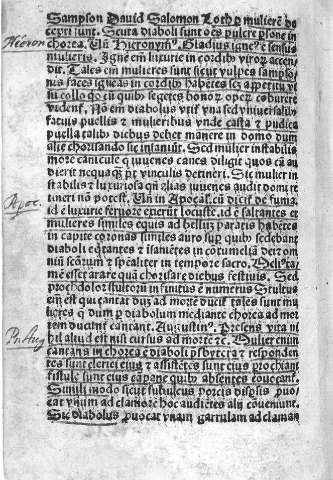 Sampson Dauid Salomon Loth ꝑ mulierē de
cepti sunt. Scuta diaboli sunt oēs pulcre ꝑsone in
Hieron chorea. Uñ Hieronymꝰ. Gladius igneꝰ ē sensus
mulieris. Ignē em̄ luxurie in cordibꝰ viroꝝ accen-
dit. Tales em̄ mulieres sunt sicut vulpes sampso-
nis faces igneas in cordibꝰ habētes
sui collo qō cū quibꝰ segetes honoꝝ operū cōburere
vident᷑. Nō em̄ diabolus vtit᷑ vna sed vniuersalibꝰ
factus puellis & mulieribus vnde casta & pudica
puella talibꝰ diebus debet manere in domo dum
alie chorisando sic insaniūt. Sed mulier instabilis
more canicule q̄ iuuenes canes diligit quos cū au
dierit nequaq̄ꝫ ꝑ vinculis detineri. Sic mulier in
stabilis & luxuriosa qñ alias iuuenes audit domi re
Apoc. tineri nō potest. Uñ in Apocal. cū dicit᷑ de fumo
id ē luxurie feruore exierūt locuste. id ē saltantes et
mulieres similes equis ad bellū paratis habētes
in capite coronas similes auro sup̄ quibꝰ sedebant
diaboli eq̄tantes & saniētes in cōtumeliā dei om
niū scōrum & sp̄ealiter in tempore sacro. Meliꝰ ta
mē esset arare quā chorisare diebus festiuis. Sed
prochdolor stultorū infinitus ē numerus Stultus
em̄ est qui cantat dū ad mortē ducit᷑ tales sunt mu
lieres q̄ dum ꝑ diabolum mediante chorea ad mor
Pn. Aug tem ducunt᷑ cantant. Augustinꝰ. Presens vita ni
hil aliud est nisi cursus ad mortē &c. Mulier enim
cantans in chorea ē diaboli p̄sbytera & responden
tes sunt clerici eiꝰ & assistētes sunt eius prochiani
fistule sunt eius cāpane quibꝰ absentes conuocant.
Simili modo sicut subulcus porcis dispsis ꝓuo
cat vnum ad clamorē hoc audiētes alij cōueniunt.
Sic diabolus ꝓuocat vnam garrulam ad claman